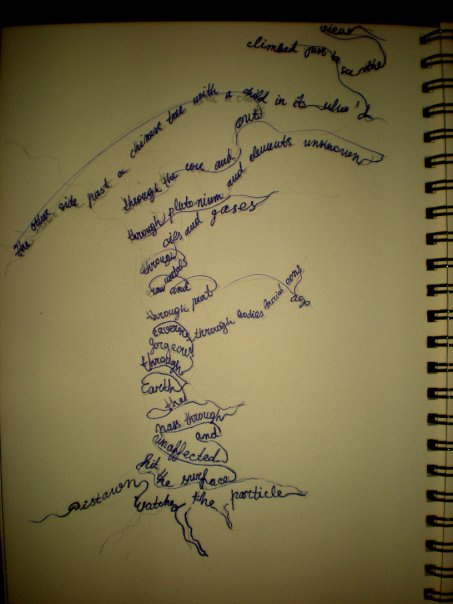 watches the particle
hit the surface
unaffected
and
pass through
the
Earth
through
gorgeous
caverns
through bodies buried eons
ago
through peat
raw and
metals
through
oils and gases
through plutonium and elements unknown
through the core and
out
The other side past a chinese tree with a child in it
climbed just to see the
view